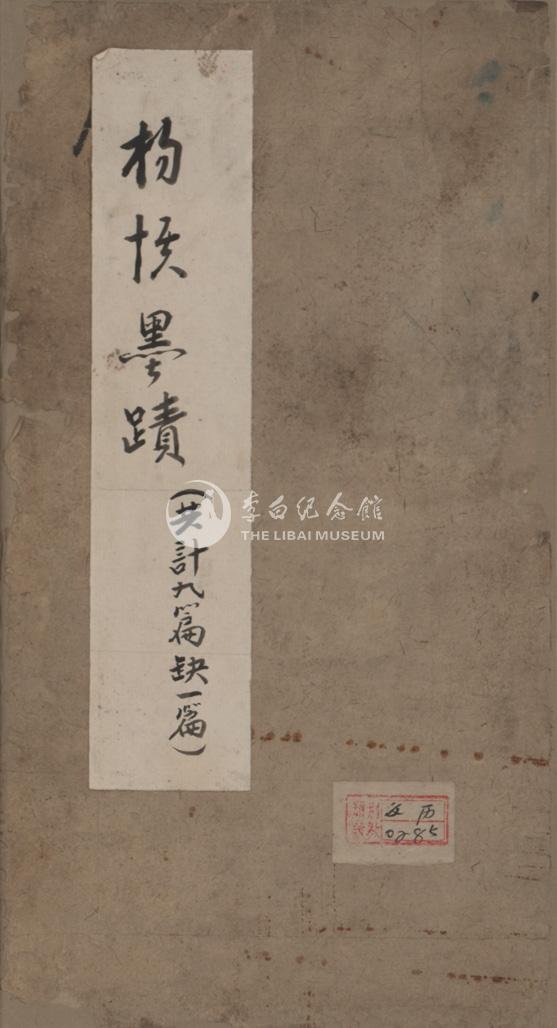 杨慎墨蹟
(共计九篇缺一篇)
李白纪念館
THE LIBAI MUSEUM
0285